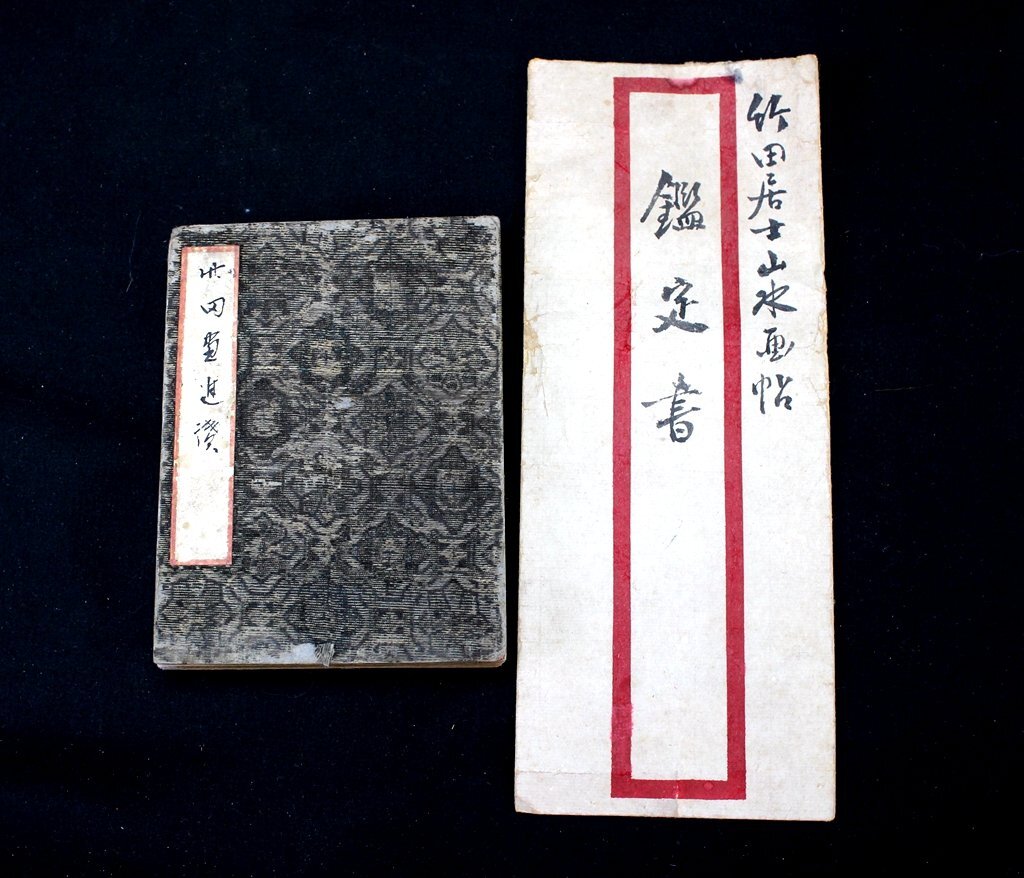 竹田居士山水画帖
鑑定書
竹田畫